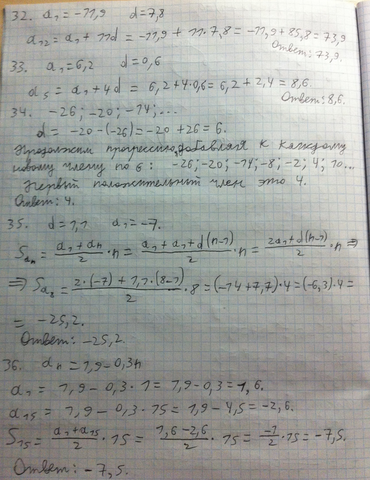 32. a₁ = -11,9 d = 7,8
a₁₂ = a₁ + 11d = -11,9 + 11·7,8 = -11,9 + 85,8 = 73,9
Ответ: 73,9.
33. a₁ = 6,2 d = 0,6
a₅ = a₁ + 4d = 6,2 + 4·0,6 = 6,2 + 2,4 = 8,6.
Ответ: 8,6.
34. -26; -20; -14; ...
d = -20 - (-26) = -20 + 26 = 6.
Продолжим прогрессию, добавляя к каждому
новому члену по 6: -26; -20; -14; -8; -2; 4; 10...
Первый положительный член это 4.
Ответ: 4.
35. d = 1,1 a₁ = -7.
Saₙ = (a₁ + aₙ)/2 · n = (a₁ + a₁ + d(n-1))/2 · n = (2a₁ + d(n-1))/2 · n ⇒
⇒ Sa₈ = (2·(-7) + 1,1·(8-1))/2 · 8 = (-14 + 7,7)·4 = (-6,3)·4 =
= -25,2.
Ответ: -25,2.
36. aₙ = 1,9 - 0,3n
a₁ = 1,9 - 0,3·1 = 1,9 - 0,3 = 1,6.
a₁₅ = 1,9 - 0,3·15 = 1,9 - 4,5 = -2,6.
S₁₅ = (a₁ + a₁₅)/2 · 15 = (1,6 - 2,6)/2 · 15 = -1/2 · 15 = -7,5.
Ответ: -7,5.